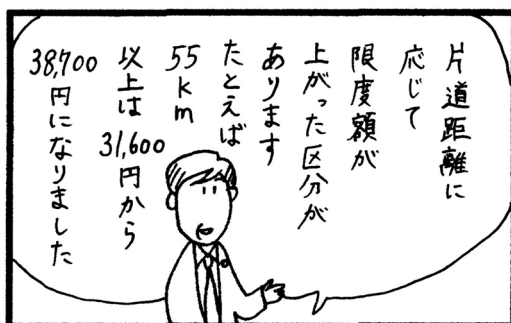 片道距離に
応じて
限度額が
上がった区分が
あります
たとえば
55km
以上は
31,600円から
38,700円になりました